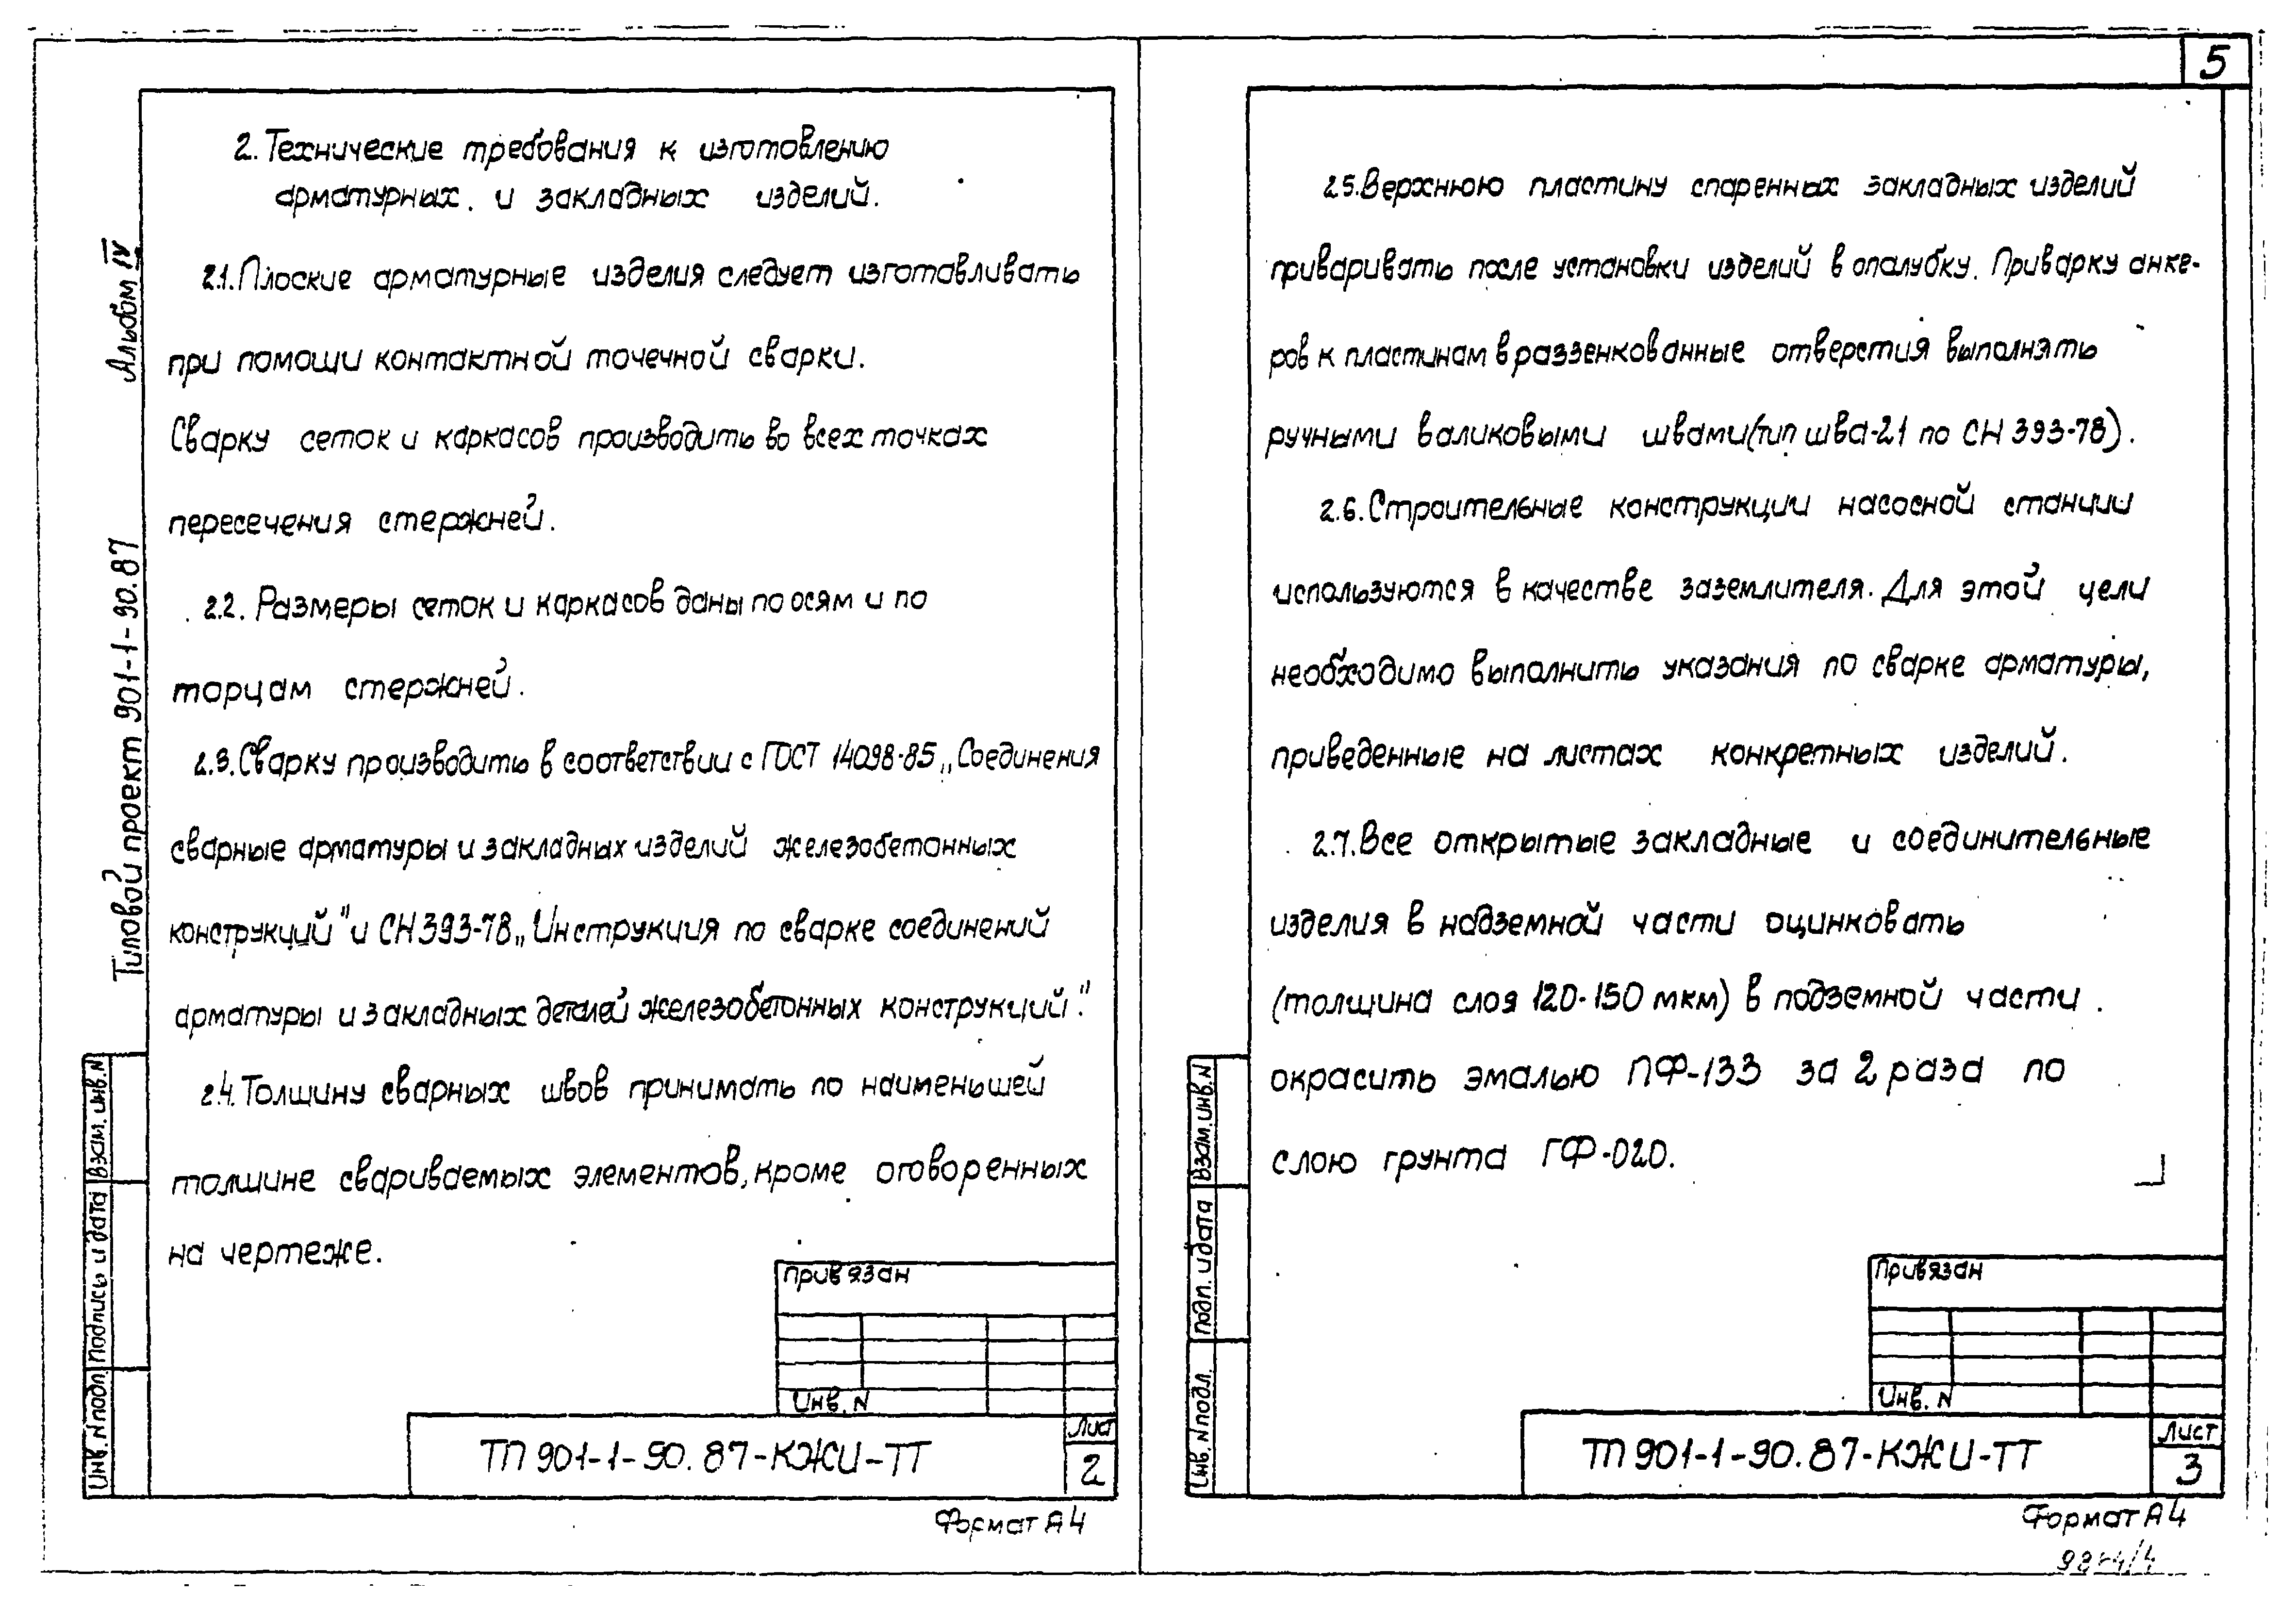 5
Альбом IV
Типовой проект 901-1-90.87
2. Технические требования к изготовлению
арматурных. и закладных изделий.
2.1. Плоские арматурные изделия следует изготавливать
при помощи контактной точечной сварки.
Сварку сеток и каркасов производить во всех точках
пересечения стержней.
2.2. Размеры сеток и каркасов даны по осям и по
торцам стержней.
2.3. Сварку производить в соответствии с ГОСТ 14098-85 „Соединения
сварные арматуры и закладных изделий железобетонных
конструкций" и СН 393-78 „Инструкция по сварке соединений
арматуры и закладных деталей железобетонных конструкций".
2.4. Толщину сварных швов принимать по наименьшей
толщине свариваемых элементов, кроме оговоренных
на чертеже.
Привязан
Инв. N
ТП 901-1-90.87-КЖИ-ТТ
Лист
2
Формат А4
Взам. инв. N
Подпись и дата
Инв. N подл.
2.5. Верхнюю пластину спаренных закладных изделий
приваривать после установки изделий в опалубку. Приварку анке-
ров к пластинам в раззенкованные отверстия выполнять
ручными валиковыми швами (тип шва-21 по СН 393-78).
2.6. Строительные конструкции насосной станции
используются в качестве заземлителя. Для этой цели
необходимо выполнить указания по сварке арматуры,
приведенные на листах конкретных изделий.
2.7. Все открытые закладные и соединительные
изделия в надземной части оцинковать
(толщина слоя 120-150 мкм) в подземной части.
окрасить эмалью ПФ-133 за 2 раза по
слою грунта ГФ-020.
Привязан
Инв. N
ТП 901-1-90.87-КЖИ-ТТ
Лист
3
Формат А4
Взам. инв. N
Подп. и дата
Инв. N подл.